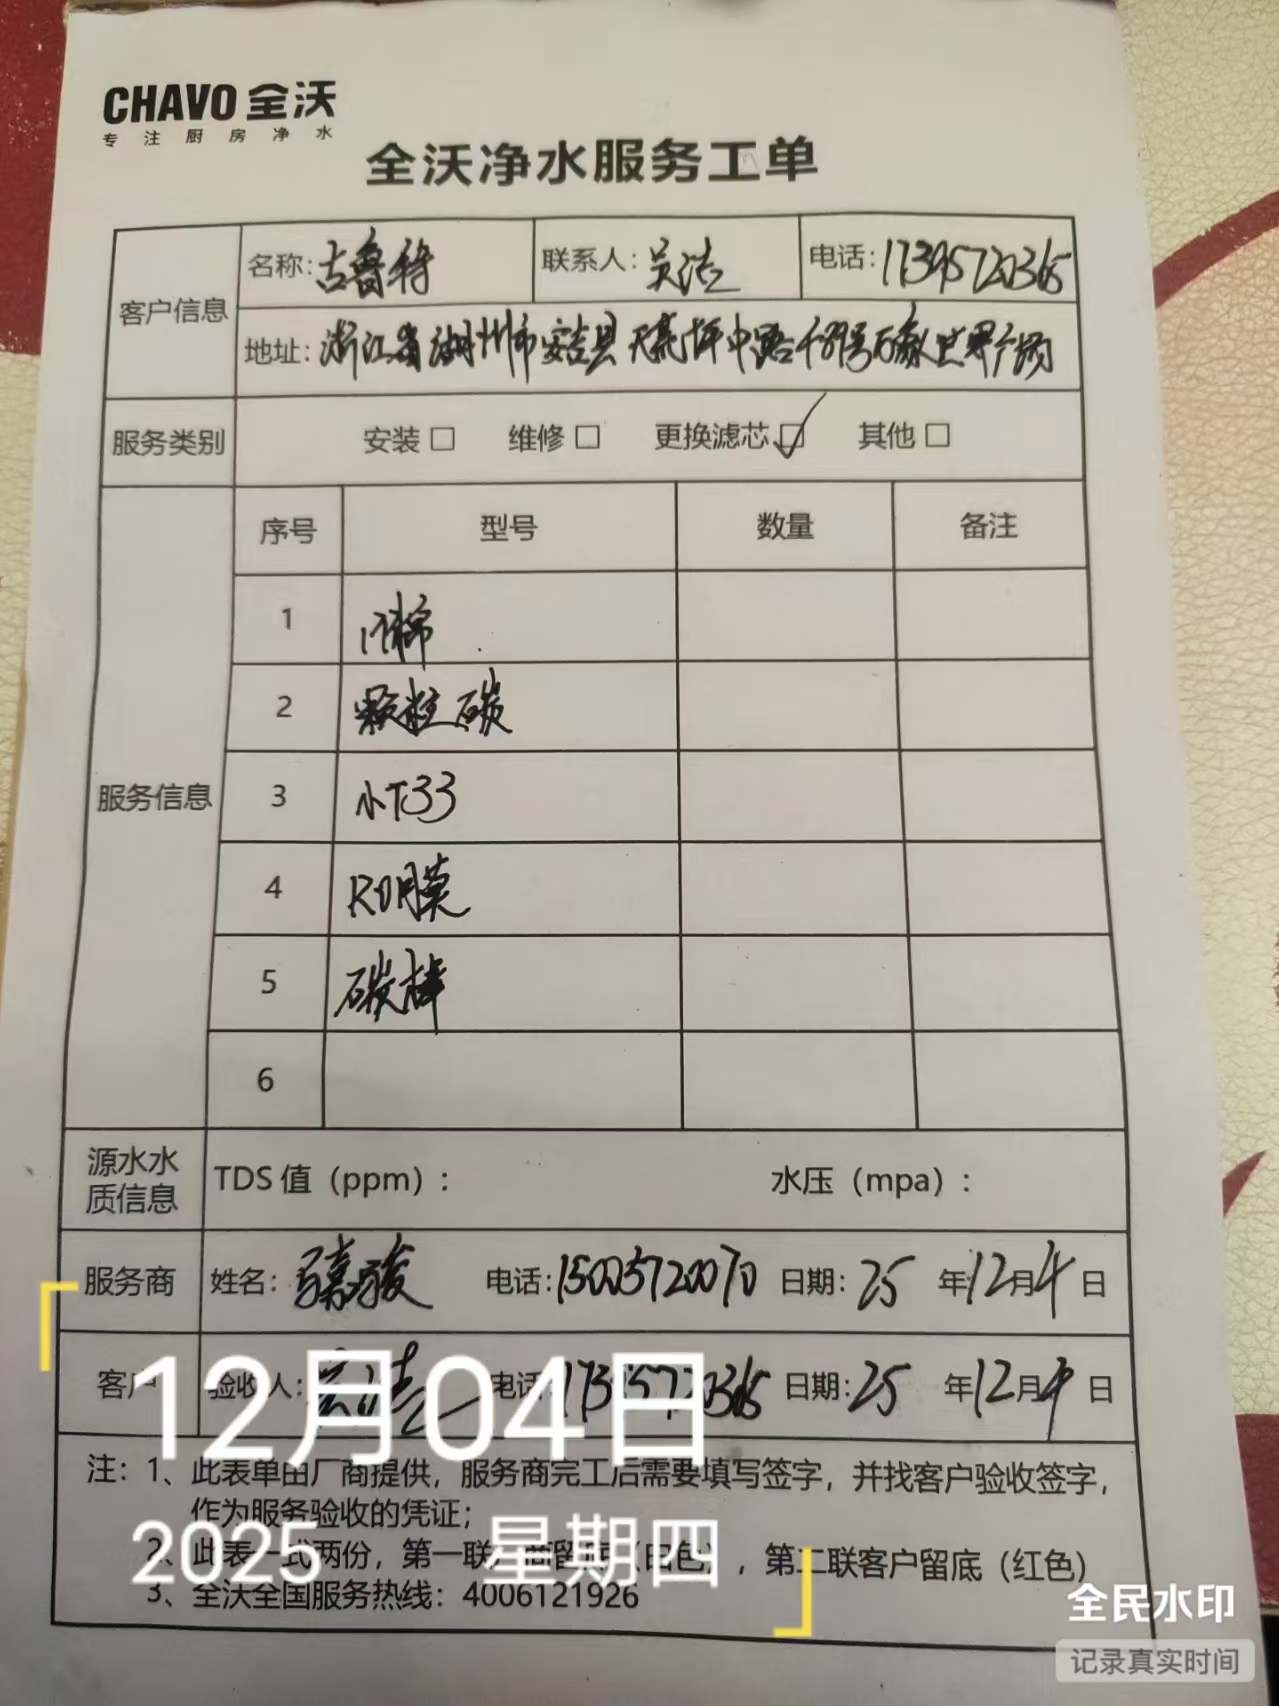 CHAVO 全沃
专注厨房净水
全沃净水服务工单
客户信息
名称：古鲁特 联系人：吴洁 电话：17395720365
地址：浙江省湖州市安吉县天荒坪中路 号万象世界广场
服务类别 安装□ 维修□ 更换滤芯□✓ 其他□
服务信息
序号 型号 数量 备注
1 PP棉
2 颗粒碳
3 小T33
4 RO膜
5 碳棒
6
源水水质信息 TDS 值（ppm）： 水压（mpa）：
服务商 姓名： 电话：15005720070 日期：25 年12月4日
客户 验收人： 电话: 日期：25 年12月4日
12月04日
注：1、此表单由厂商提供，服务商完工后需要填写签字，并找客户验收签字，
作为服务验收的凭证；
2、此表一式两份，第一联 （白色），第二联客户留底（红色）
2025 星期四
3、全沃全国服务热线：4006121926
全民水印
记录真实时间